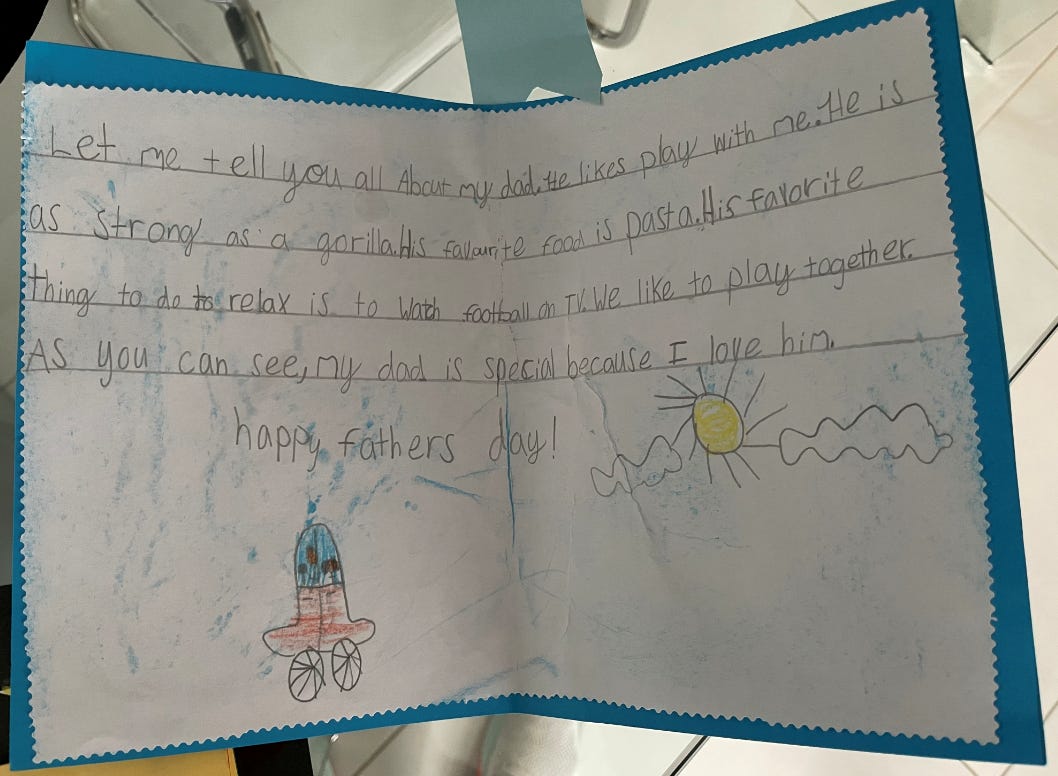 Let me tell you all About my dad. He likes play with me. He is
as strong as a gorilla. His favourite food is pasta. His favorite
thing to do to relax is to watch football on TV. We like to play together.
As you can see, my dad is special because I love him.
happy fathers day!